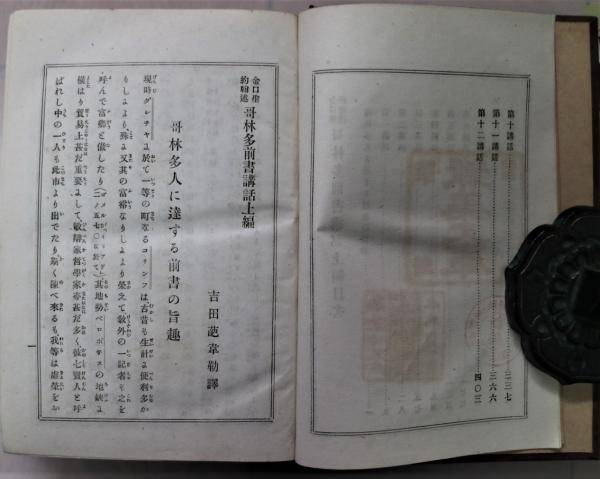 第十講話…………三三七
第十一講話…………三六六
第十二講話…………四〇三
金口聖
約翰述 哥林多前書講話上編
吉田葩韋勒譯
哥林多人に達する前書の旨趣
現時グレチヤに於て一等の町なるコリンフは古昔も生計に便利多か
りしにより殊に又其の富裕なりしにより榮えて敎外の一記者も之を
呼んで富鄕と做したり
其地勢ペロポネスの地峽に
橫はり貿易上甚だ重要にして敏辯家哲學家亦甚だ多く彼七賢人と呼
ばれし中の一人も此市より出でたり
べ來るも我等は虛榮を
一